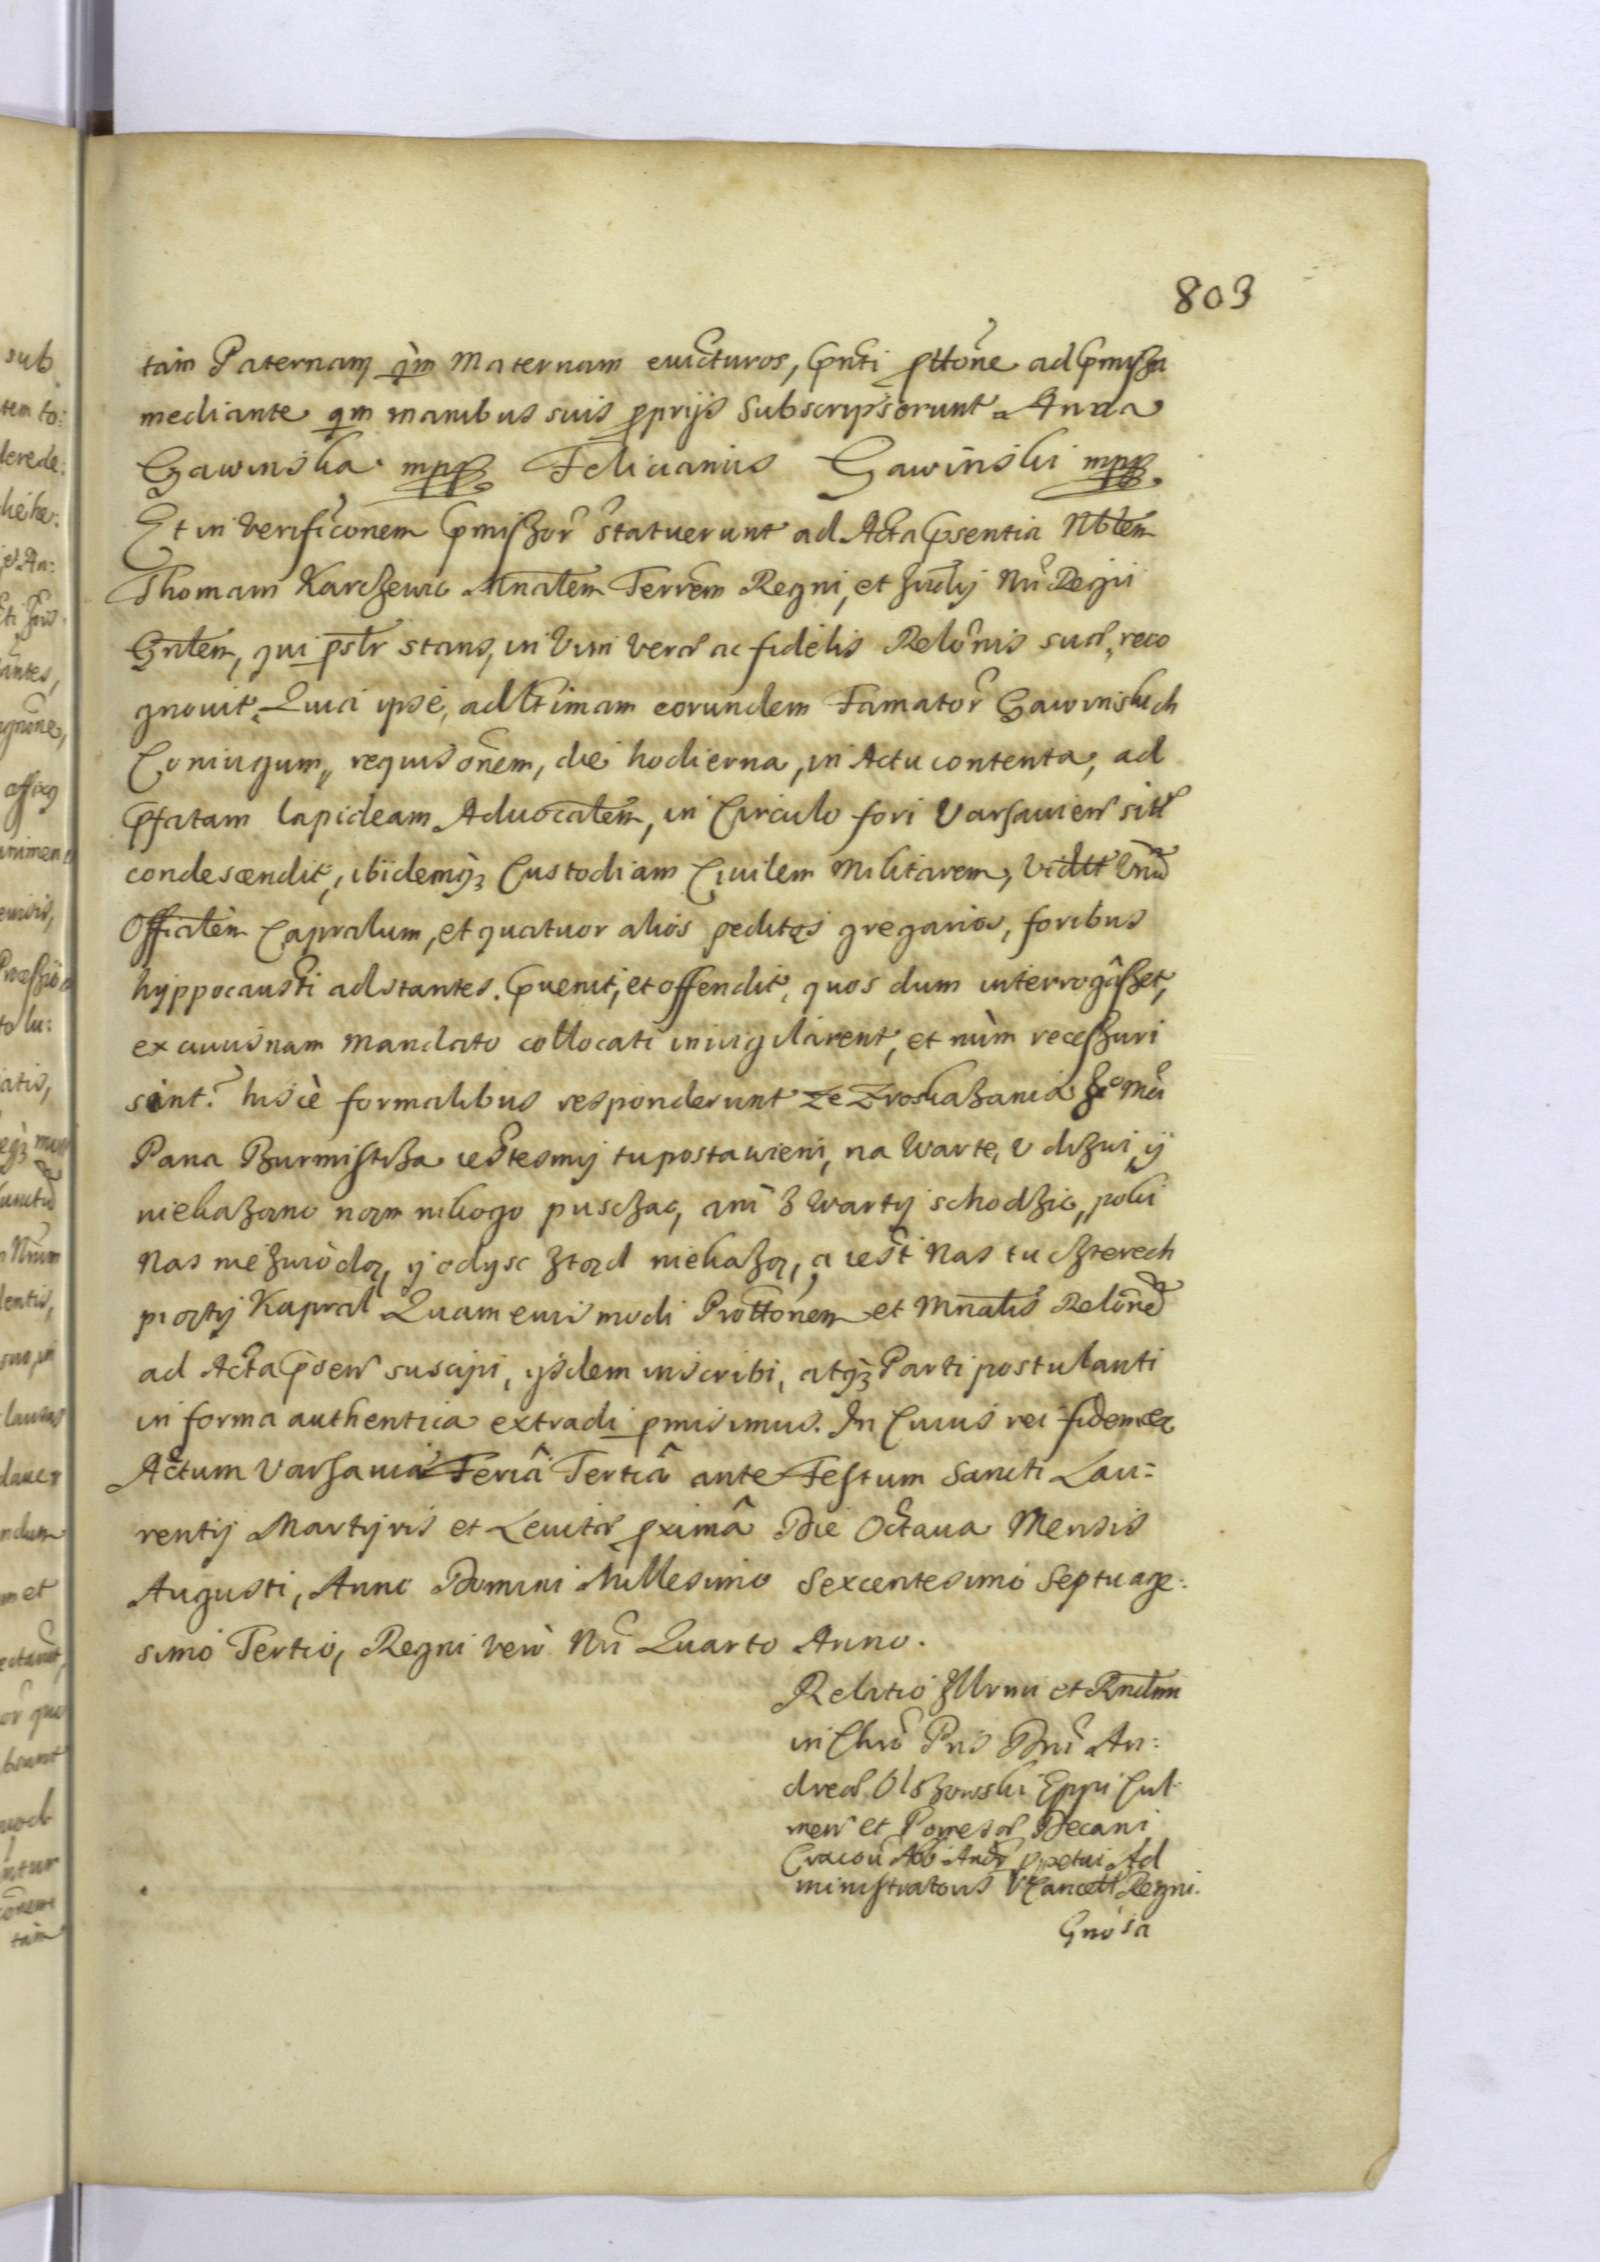 803
tàm Paternam qm̃ Maternam euicturos, Pñti pttõne ad Pmissa
mediante qm manibus suis pprijs Subscripserunt Anna
Gawinska mpp. Felicianus Gawinski mpp.
Et in Verificõnem Pmissor̃ statuerunt ad Acta Psentia Nblem
Thomam Karczewic Mnãlem Terrẽm Regni, et Judij Nri Regij
Gnãlem, qui pslr stans, in Vim Veræ ac fidelis Relõnis suæ, reco
gnouit. Quia ipse, ad lt̃imam eorundem Famator̃ Gawinskich
Coniugum, requisõnem, die hodierna, in Actu contenta, ad
Pfatam lapideam Aduocãlem, in Circulo fori Varsauien̄ sitã
condescendit, ibidemq3 Custodiam Ciuilem Militarem, vidlt Vnũ
Officiãlem Capralum, et quatuor alios pedites gregarios, foribus
hyppocausti adstantes. Puenit, et offendit, quos dum interrogâsset,
ex cuiusnam mandato collocati inuigilarent, et nùm recessuri
sint? hiscè formalibus responderunt Ze Zroskazania Je° Mci
Pana Burmistrza iestesmy tu postawieni, na Warte, v drzwi, y
niekazano nam nikogo pusczac, ani z Warty schodzic, poki
nas nie zwiodą, y odysc ztąd niekazą, a iest nas tu czterech
piąty Kapral Quam eiusmodi Prottõnem et Mnãlis Relõnẽ
ad Acta Psen̄ suscipi, ijsdem inscribi, atq3 Parti postulanti
in forma authentica extradi pmisimus. In Cuius rei fidem &c
Actum Varsauiæ Feriâ Tertiâ ante Festum Sancti Lau=
rentij Martyris et Leuitæ pximâ Die Octaua Mensis
Augusti, Anno Domini Millesimo Sexcentesimo Septuage:
simo Tertio, Regni verò Nri Quarto Anno.
Relatio Illrmi et Rndmi
in Chro Pris Dni An:
dreæ Olszowski Eppi Cul
men̄ et Pomesaæ Decani
Cracou ppetui Ad
ministratoris VCancell Regni.